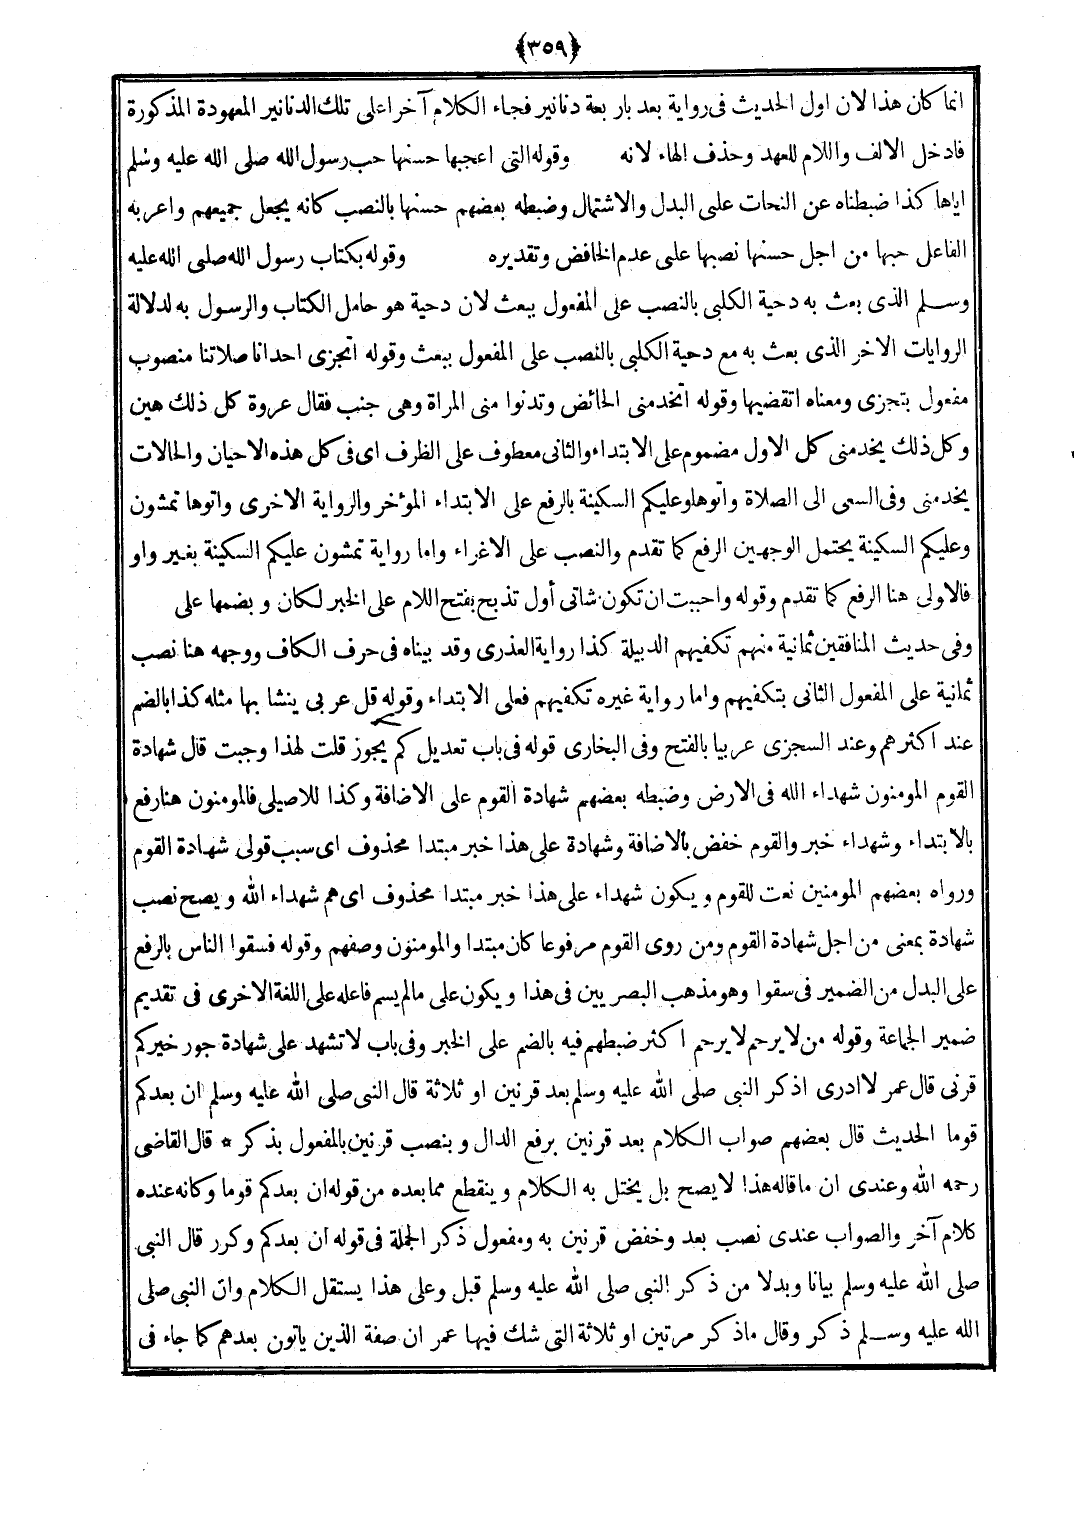 ﴿٣٥٩﴾
انما كان هذا لان اول الحديث فى رواية بعد باربعة دنانير فجاء الكلام آخرا على تلك الدنانير المعهودة المذكورة
فادخل الالف واللام للعهد وحذف الهاء لانه وقوله التى اعجبها حسنها حب رسول الله صلى الله عليه وسلم
اياها كذا ضبطناه عن النحات على البدل والاشتمال وضبطه بعضهم حسنها بالنصب كانه يجعل جميعهم واعربه
الفاعل حبها من اجل حسنها نصبها على عدم الخافض وتقديره وقوله بكتاب رسول الله صلى الله عليه
وسلم الذى بعث به دحية الكلبى بالنصب على المفعول ببعث لان دحية هو حامل الكتاب والرسول به لدلالة
الروايات الاخر الذى بعث به مع دحية الكلبى بالنصب على المفعول ببعث وقوله اتجزى احدانا صلاتنا منصوب
مفعول بتجزى ومعناه اتقضيها وقوله اتخدمنى الحائض وتدنوا منى المراة وهى جنب فقال عروة كل ذلك هين
وكل ذلك يخدمنى كل الاول مضموم على الابتداء والثانى معطوف على الظرف اى فى كل هذه الاحيان والحالات
يخدمنى وفى السعى الى الصلاة واتوها وعليكم السكينة بالرفع على الابتداء المؤخر والرواية الاخرى واتوها تمشون
وعليكم السكينة يحتمل الوجهين الرفع كما تقدم والنصب على الاغراء واما رواية تمشون عليكم السكينة بغير واو
فالاولى هنا الرفع كما تقدم وقوله واحببت ان تكون شاتى أول تذبح بفتح اللام على الخبر لكان وبضمها على
وفى حديث المنافقين ثمانية منهم تكفيهم الدبيلة كذا رواية العذرى وقد بيناه فى حرف الكاف ووجهه هنا نصب
ثمانية على المفعول الثانى بتكفيهم واما رواية غيره تكفيهم فعلى الابتداء وقوله قل عربى ينشا بها مثله كذا بالضم
عند اكثرهم وعند السجزى عربيا بالفتح وفى البخارى قوله فى باب تعديل كم يجوز قلت لهذا وجبت قال شهادة
القوم المومنون شهداء الله فى الارض وضبطه بعضهم شهادة القوم على الاضافة وكذا للاصيلى فالمومنون هنا رفع
بالابتداء وشهداء خبر والقوم خفض بالاضافة وشهادة على هذا خبر مبتدا محذوف اى سبب قولى شهادة القوم
ورواه بعضهم المومنين نعت للقوم ويكون شهداء على هذا خبر مبتدا محذوف اى هم شهداء الله ويصح نصب
شهادة بمعنى من اجل شهادة القوم ومن روى القوم مرفوعا كان مبتدا والمومنون وصفهم وقوله فسقوا الناس بالرفع
على البدل من الضمير فى سقوا وهو مذهب البصريين فى هذا ويكون على مالم يسم فاعله على اللغة الاخرى فى تقديم
ضمير الجماعة وقوله من لا يرحم لا يرحم اكثر ضبطهم فيه بالضم على الخبر وفى باب لا تشهد على شهادة جور خيركم
قرنى قال عمر لا ادرى اذكر النبى صلى الله عليه وسلم بعد قرنين او ثلاثة قال النبى صلى الله عليه وسلم ان بعدكم
قوما الحديث قال بعضهم صواب الكلام بعد قرنين برفع الدال وبنصب قرنين بالمفعول بذكر * قال القاضى
رحمه الله وعندى ان ما قاله هذا لا يصح بل يختل به الكلام وينقطع مما بعده من قوله ان بعدكم قوما وكانه عنده
كلام آخر والصواب عندى نصب بعد وخفض قرنين به ومفعول ذكر الجملة فى قوله ان بعدكم وكرر قال النبى
صلى الله عليه وسلم بيانا وبدلا من ذكر النبى صلى الله عليه وسلم قبل وعلى هذا يستقل الكلام وان النبى صلى
الله عليه وسلم ذكر وقال ماذكر مرتين او ثلاثة التى شك فيها عمر ان صفة الذين ياتون بعدهم كما جاء فى